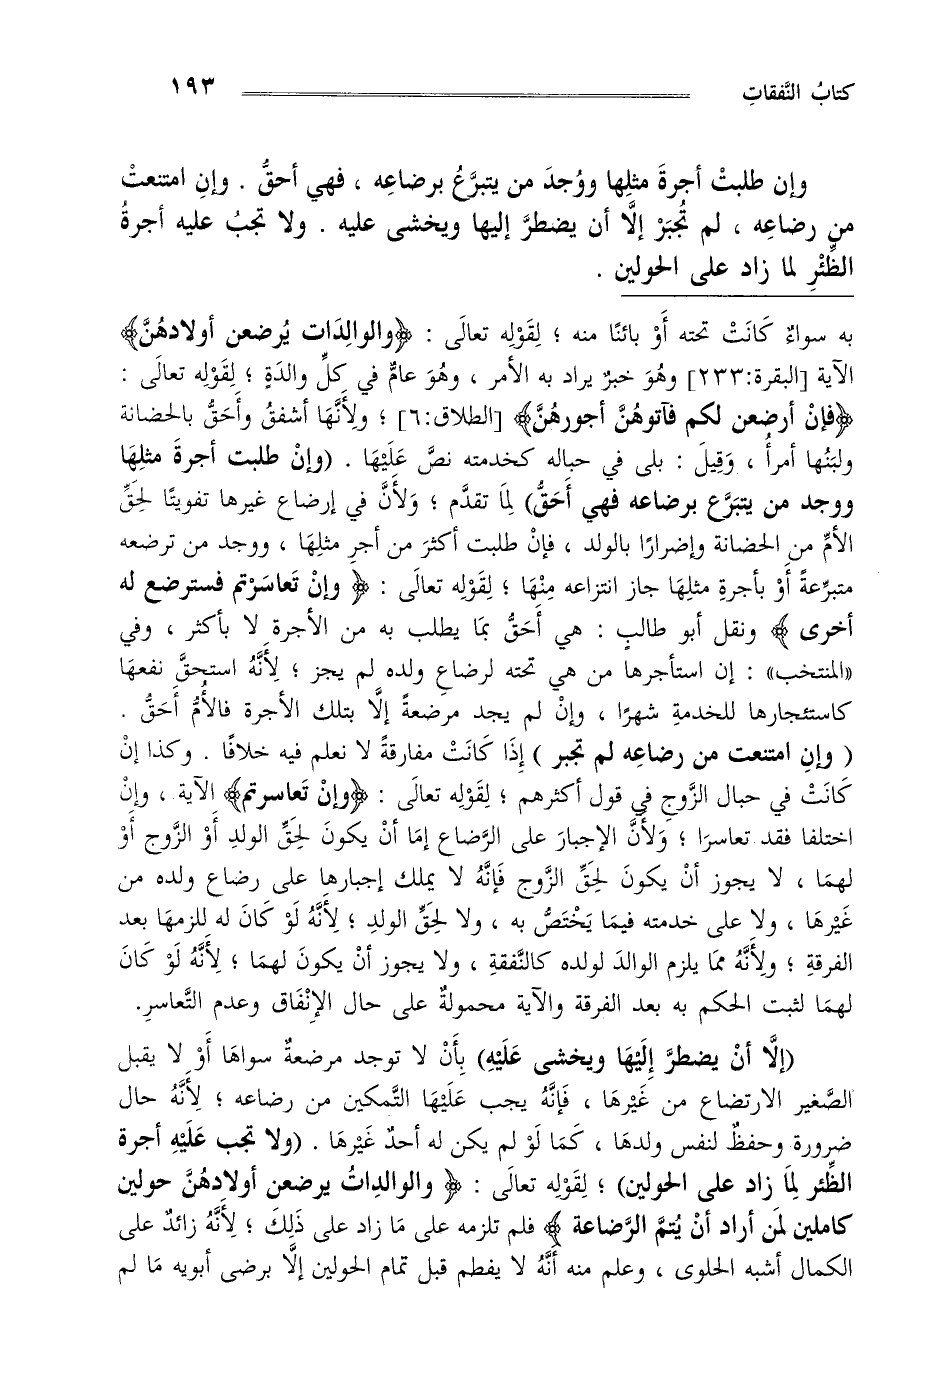 كتابُ النَّفقاتِ ١٩٣
وإن طلبتْ أجرةَ مثلِها ووُجدَ من يتبرَّعُ برضاعِه ، فهي أحقُّ . وإنِ امتنعتْ
من رضاعِه ، لم تُجبَرْ إلَّا أن يضطرَّ إليها ويخشى عليه . ولا تجبُ عليه أجرةُ
الظِّئْرِ لما زاد على الحولين .
به سواءٌ كَانَتْ تحته أَوْ بائنًا منه ؛ لِقَوْلِه تعالَى : ﴿والوالِدَات يُرضعن أولادهُنَّ﴾
الآية [البقرة:٢٣٣] وهُوَ خبرٌ يراد به الأمر ، وهُوَ عامٌّ في كلِّ والدَةٍ ؛ لِقَوْلِه تعالَى :
﴿فإنْ أرضعن لكم فآتوهُنَّ أجورهُنَّ﴾ [الطلاق:٦] ؛ ولِأَنَّهَا أشفقُ وأَحَقُّ بالحضانة
ولبَنُها أمرأُ ، وَقِيلَ : بلى في حباله كخدمته نصَّ عَلَيْهَا . (وإنْ طلبت أجرةَ مثلِهَا
ووجد من يتبَرَّع برضاعه فهي أَحَقُّ) لِمَا تقدَّم ؛ وَلأَنَّ في إرضاع غيرها تفويتًا لحِقِّ
الأمِّ من الحضانة وإضرارًا بالولد ، فإنْ طلبت أكثرَ من أجرِ مثلِهَا ، ووجد من ترضعه
متبرِّعةً أَوْ بأجرةِ مثلِهَا جاز انتزاعه مِنْهَا ؛ لِقَوْلِه تعالَى : ﴿ وإنْ تَعاسَرْتم فسترضع له
أخرى ﴾ ونقل أبو طالبٍ : هي أَحَقُّ بمَا يطلب به من الأجرة لا بأكثر ، وفي
«المنتخب» : إن استأجرها من هي تحته لرضاعِ ولده لم يجز ؛ لِأَنَّهُ استحقَّ نفعهَا
كاستئجارها للخدمةِ شهرًا ، وإنْ لم يجد مرضعةً إلَّا بتلك الأجرة فالأُمُّ أَحَقُّ .
( وإنِ امتنعت من رضاعِه لم تجبر ) إِذَا كَانَتْ مفارقةً لا نعلم فيه خلافًا . وكذا إنْ
كَانَتْ في حبال الزَّوجِ في قول أكثرهم ؛ لِقَوْلِه تعالَى : ﴿وإنْ تَعاسرتم﴾ الآية ، وإنْ
اختلفا فقد تعاسرَا ؛ وَلأَنَّ الإجبارَ على الرَّضاع إمَا أنْ يكونَ لحِقِّ الولدِ أَوْ الزَّوج أَوْ
لهمَا ، لا يجوز أنْ يكونَ لحِقِّ الزَّوج فَإنَّهُ لا يملك إجبارها على رضاع ولده من
غَيْرِهَا ، ولا على خدمته فيمَا يَخْتَصُّ به ، ولا لحِقِّ الولدِ ؛ لِأَنَّهُ لَوْ كَانَ له للزمهَا بعد
الفرقةِ ؛ ولِأَنَّهُ ممَا يلزم الوالدَ لولده كالنَّفقةِ ، ولا يجوز أنْ يكونَ لهمَا ؛ لِأَنَّهُ لَوْ كَانَ
لهمَا لثبت الحكم به بعد الفرقة والآية محمولةٌ على حال الإنْفَاق وعدم التَّعاسرِ.
(إلَّا أنْ يضطرَّ إلَيْهَا ويخشى عَلَيْهِ) بِأَنْ لا توجد مرضعةٌ سواهَا أَوْ لا يقبل
الصَّغير الارتضاع من غَيْرِهَا ، فَإنَّهُ يجب عَلَيْهَا التَّمكين من رضاعه ؛ لِأَنَّهُ حال
ضرورة وحفظٌ لنفس ولدهَا ، كَمَا لَوْ لم يكن له أحدٌ غَيْرهَا . (ولا تجب عَلَيْهِ أجرة
الظِّئر لِمَا زاد على الحولين) ؛ لِقَوْلِه تعالَى : ﴿ والوالِداتُ يرضعن أولادهُنَّ حولين
كاملين لمَن أراد أنْ يُتمَّ الرَّضاعة ﴾ فلم تلزمه على مَا زاد على ذَلِكَ ؛ لِأَنَّهُ زائدٌ على
الكمال أشبه الحلوى ، وعلم منه أنَّهُ لا يفطم قبل تمام الحولين إلَّا برضى أبويه مَا لم